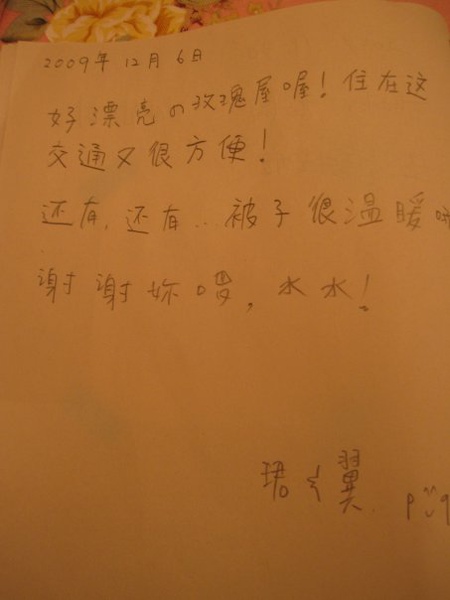 2009年12月6日
好漂亮の玫瑰屋喔！住在这
交通又很方便！
还有,还有..被子很温暖
谢谢妳喔,水水！
珺 翼